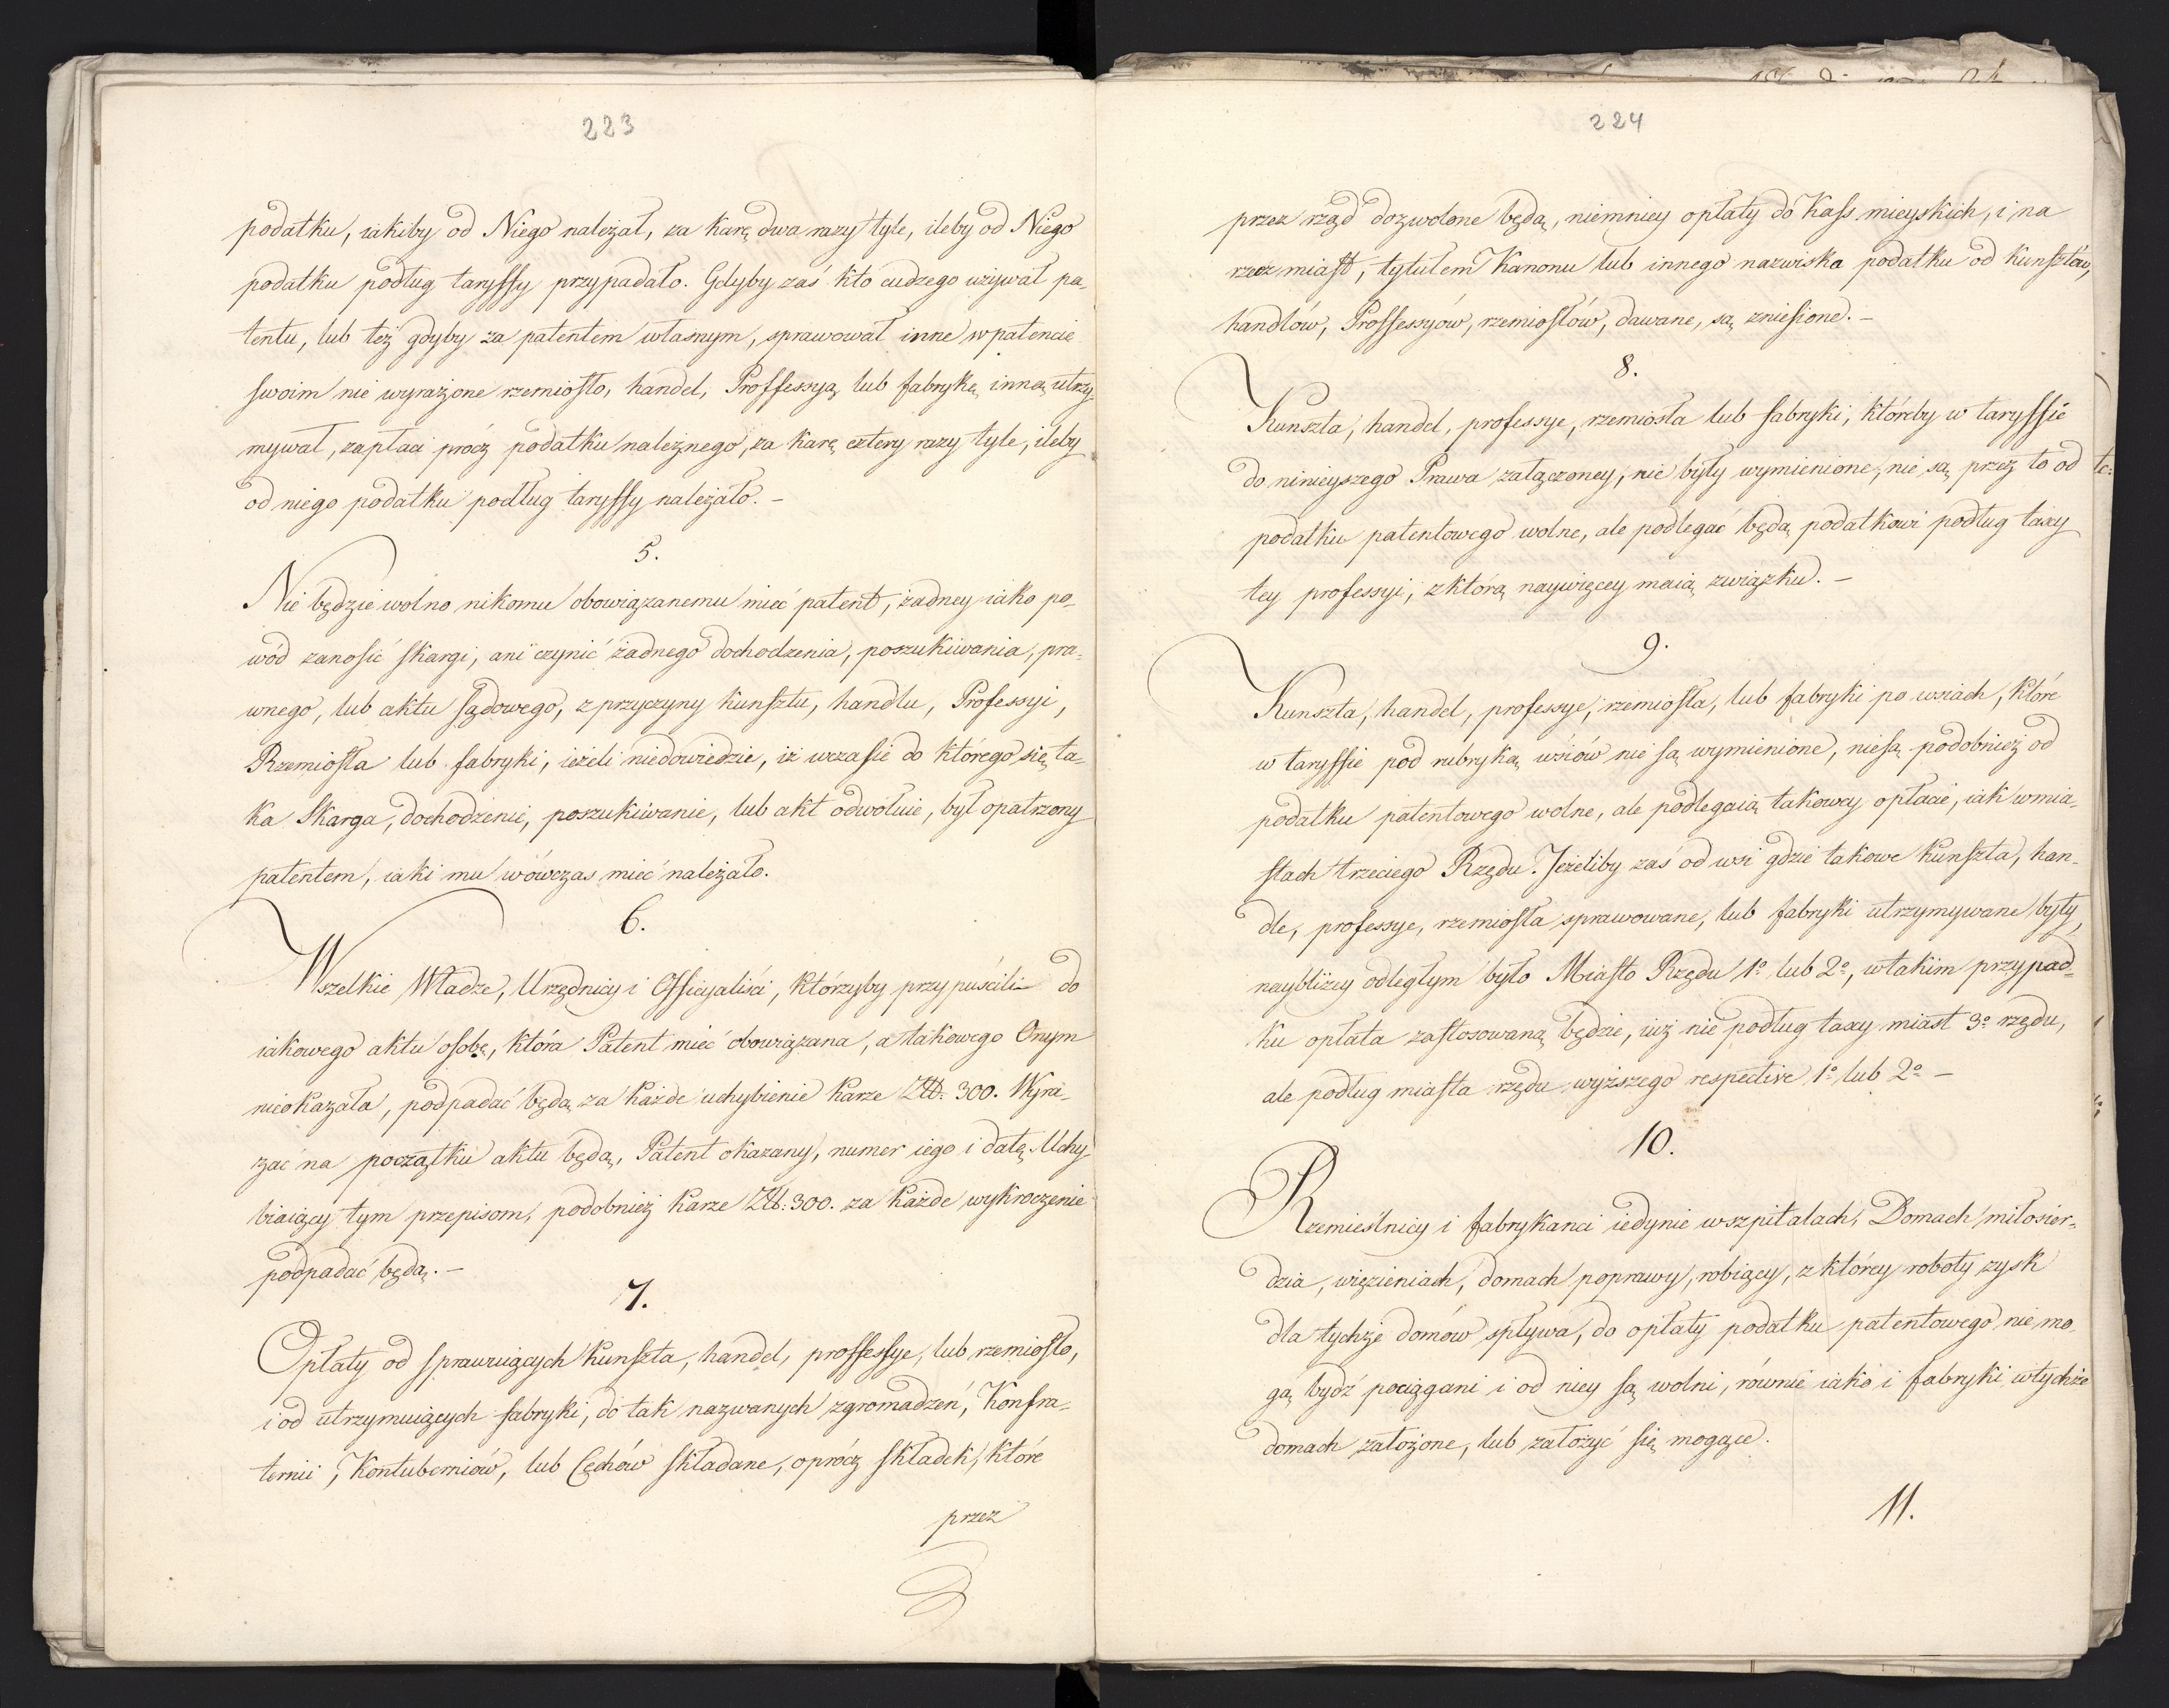 223
podatku, iakiby od Niego należał, za karę dwa razy tyle, ileby od Niego
podatku podług taryffy przypadało. Gdyby zaś kto cudzego używał pa-
tentu, lub też gdyby za patentem własnym, sprawował inne w patencie
swoim nie wyrażone rzemiosło, handel, Proffessyą lub fabrykę inną utrzy-
mywał, zapłaci prócz podatku należnego, za karę cztery razy tyle, ileby
od niego podatku podług taryffy należało. –
5.
Nie będzie wolno nikomu obowiązanemu mieć patent, żadney iako po-
wód zanosić skargi, ani czynić żadnego dochodzenia, poszukiwania, pra-
wnego, lub aktu sądowego, z przyczyny kunsztu, handlu, Professyi,
Rzemiosła lub fabryki, ieżeli niedowiedzie, iż w czasie do którego się ta-
ka Skarga, dochodzenie, poszukiwanie, lub akt odwołuie, był opatrzony
patentem, iaki mu wówczas mieć należało.
6.
Wszelkie Władze, Urzędnicy i Officyaliści, którzyby przypuścili do
iakowego aktu osobę, która Patent mieć obowiązana, a takowego Onym
nieokazała, podpadać będą za każde uchybienie karze Złł. 300. Wyra-
żać na początku aktu będą, Patent okazany, numer iego i datę. Uchy-
biaiący tym przepisom, podobnież karze Złł: 300. za każde wykroczenie
podpadać będą. –
7.
Opłaty od sprawuiących kunszta, handel, proffessye, lub rzemiosło,
i od utrzymuiących fabryki, do tak nazwanych zgromadzeń, Konfra-
ternii, Kontuberniów, lub Cechów składane, oprócz składek, które
przez
224
przez rząd dozwolone będą, niemniey opłaty do Kass mieyskich, i na
rzecz miast, tytułem Kanonu lub innego nazwiska podatku od kunsztów,
handlów, Proffessyów, rzemiosłów, dawane, są zniesione. –
8.
Kunszta, handel, professye, rzemiosła lub fabryki, któreby w taryffie
do ninieyszego Prawa załączoney, nie były wymienione, nie są przez to od te:
podatku patentowego wolne, ale podlegać będą podatkowi podług taxy
tey professyi, z którą naywięcey maią związku. –
9.
Kunszta, handel, professye, rzemiosła, lub fabryki po wsiach, które
w taryffie pod rubryką wsiów nie są wymienione, niesą podobnież od
podatku patentowego wolne, ale podlegaią takowey opłacie, iak w mia-
stach trzeciego Rzędu. Jeżeliby zaś od wsi gdzie takowe kunszta, han-
dle, professye, rzemiosła sprawowane, lub fabryki utrzymywane były,
naybliżey odległym było Miasto Rzędu 1º lub 2º, w takim przypad-
ku opłata zastosowaną będzie, iuż nie podług taxy miast 3º rzędu,
ale podług miasta rzędu wyższego respective 1º lub 2º –
10.
Rzemieślnicy i fabrykanci iedynie w szpitalach, Domach miłosier-
dzia, więzieniach, domach poprawy, robiący, z którey roboty zysk
dla tychże domów spływa, do opłaty podatku patentowego nie mo-
gą bydź pociągani i od niey są wolni, równie iako i fabryki w tychże
domach założone, lub założyć się mogące.
11.